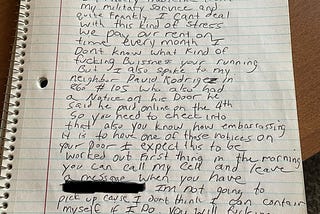 my military service and
quite frankly I cant deal
with this kind of stress
We pay our rent on
time every month I
Dont know what kind of
fucking Buissness your running
But I also spoke to my
neighbor David Rodrigez in
860 # 105 who also had
a Notice on his Door he
said he paid online on the 4th
So you need to check into
that also you know how embarrassing
it is to have one of these notices on
your Door I expect this to be
worked out First thing in the morning
you can call my cell and leave
a message when you have
Im not going to
pick up cause I dont think I can contain
myself if I Do. you will